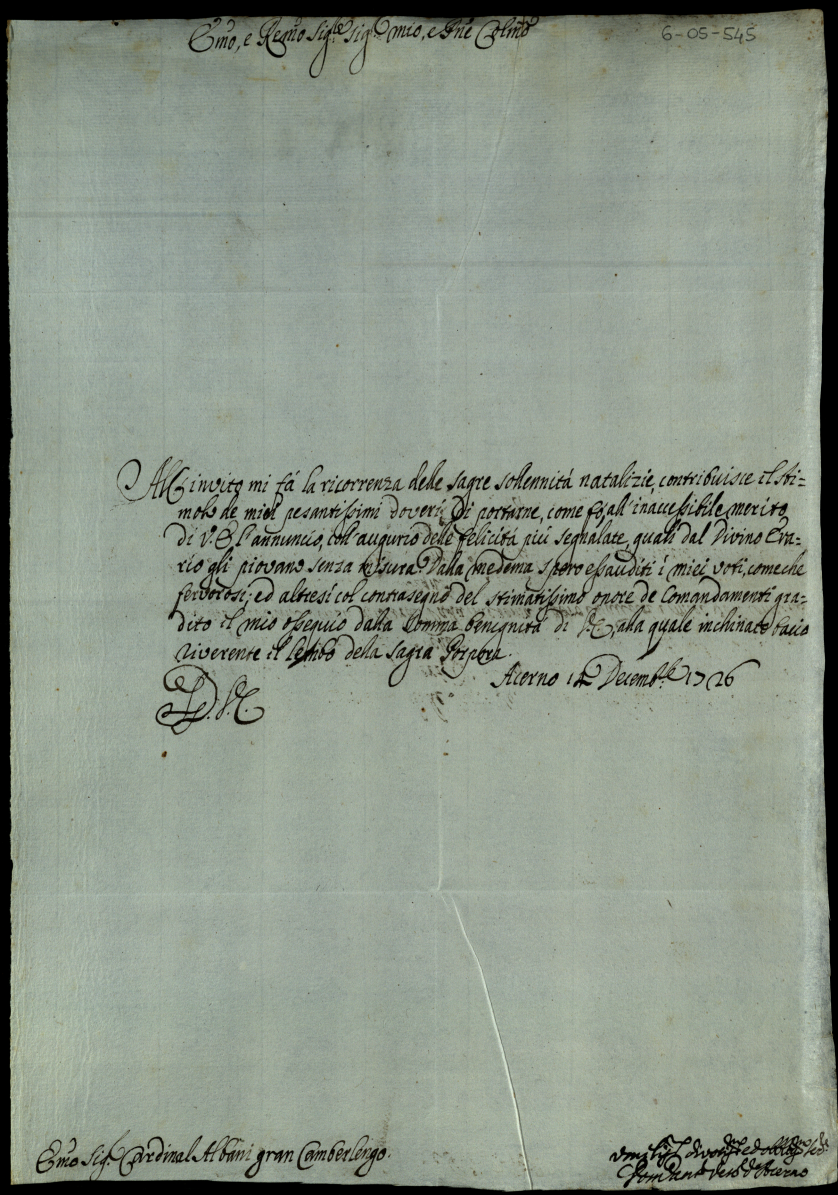 Emo, e Remo Sig.re Sig.re mio, e Pne Colmo
6-05-545
All'invito mi fá la ricorrenza delle sagre sollennitá natalizie, contribuisce il sti=
molo de miei pesantissimi doveri di portarne, come fo, all'inaccessibile merito
di V. E. l'annuncio, coll'augurio delle felicitá piú segnalate, quali dal Divino Era=
rio gli piovano senza misura. Dalla medema spero essauditi i miei voti, come che
fervorosi; ed altresí col contrasegno del stimatissimo onore de Comandamenti gra=
dito il mio ossequio dalla somma benignitá di V. E., alla quale inchinato bacio
riverente il lembo della Sagra Porpora.
Acerno 14 Decembre 1726
D. V. E.
Emo Sig.r Cardinal Albani gran Camberlengo.
Vmiliss.o divotis.o ed obblig.o
Dom.co Vesc.o d'Acerno